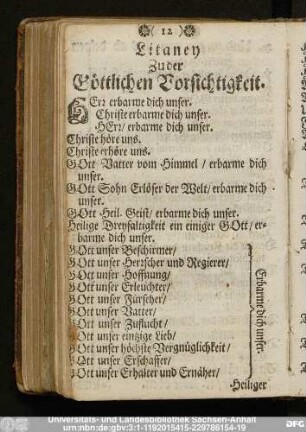 ( 12 )
Litaney
Zu der
Göttlichen Vorsichtigkeit.
HErr erbarme dich unser.
Christe erbarme dich unser.
HErr/ erbarme dich unser.
Christe höre uns.
Christe erhöre uns.
GOtt Vatter vom Himmel / erbarme dich
unser.
GOtt Sohn Erlöser der Welt/ erbarme dich
unser.
GOtt Heil. Geist/ erbarme dich unser.
Heilige Dreyfaltigkeit ein einiger GOtt/ er-
barme dich unser.
GOtt unser Beschirmer/
GOtt unser Herscher und Regierer/
GOtt unser Hoffnung/
GOtt unser Erleuchter/
GOtt unser Fürseher/
GOtt unser Vatter/
GOtt unser Zuflucht/
GOtt unser eintzige Lieb/
GOtt unser höchste Vergnüglichkeit/
GOtt unser Erschaffer/
GOtt unser Erhalter und Ernäher/
Erbarme dich unser.
Heiliger
Universitäts- und Landesbibliothek Sachsen-Anhalt
urn:nbn:de:gbv:3:1-1192015415-229786154-19
DFG